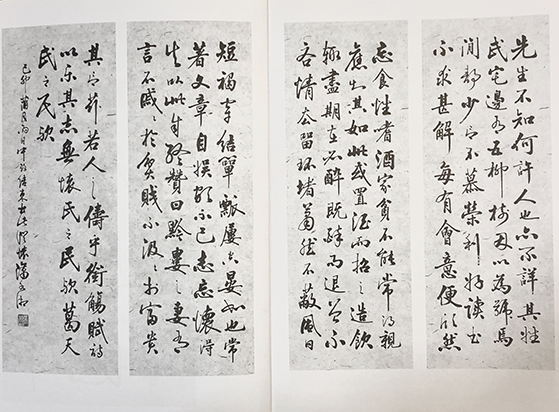 先生不知何許人也亦不詳其姓
氏宅邊有五柳樹因以為號焉
閒靜少言不慕榮利好讀書
不求甚解每有會意便欣然
忘食性耆酒家貧不能常得親
舊知其如此或置酒而招之造飲
輒盡期在必醉既醉而退曾不
吝情去留環堵蕭然不蔽風日
短褐穿結簞瓢屢空晏如也常
著文章自娛頗示己志忘懷得
失以此自終贊曰黔婁之妻有
言不戚戚於貧賤不汲汲於富貴
其言茲若人之儔乎銜觴賦詩
以樂其志無懷氏之民歟葛天
氏之民歟
己卯蒲月